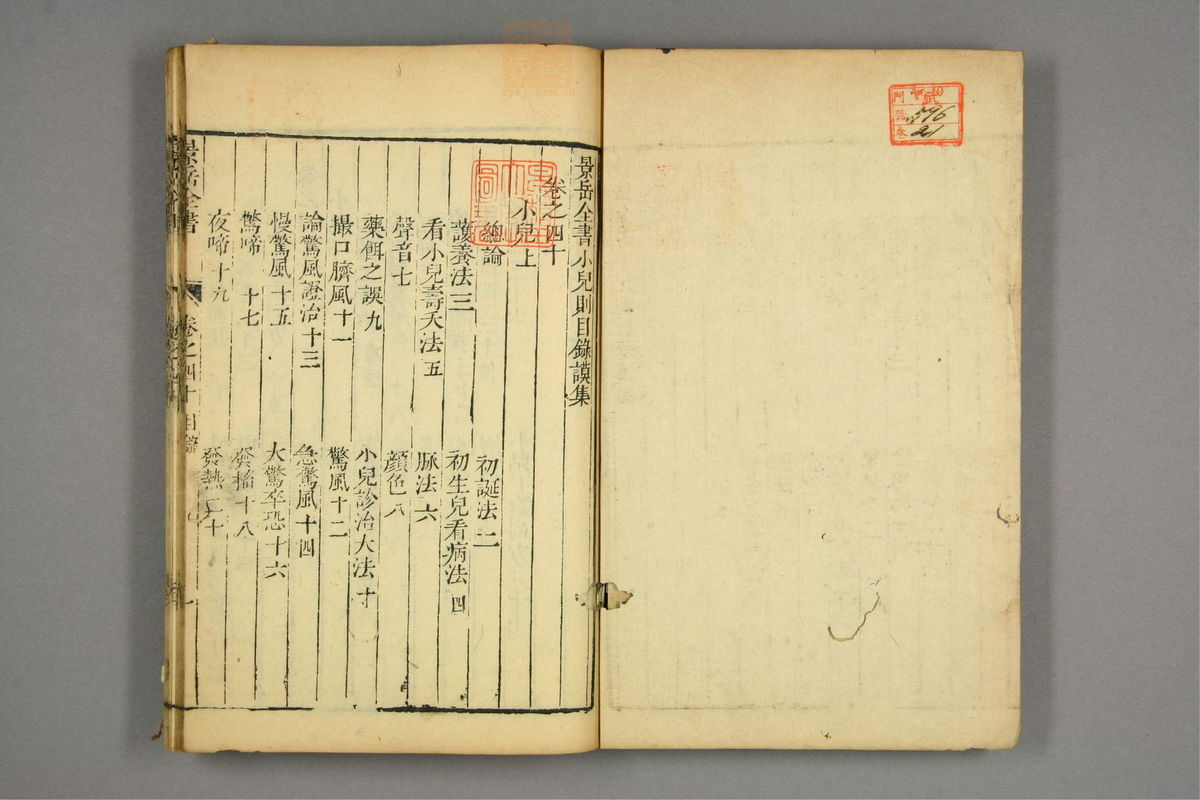 景岳全書小兒則目錄謨集
卷之四十
小兒上
總論
初誕法二
護養法三
初生兒看病法四
看小兒壽夭法五
脉法六
聲音七
顔色八
藥餌之誤九
小兒診治大法十
撮口臍風十一
驚風十二
論驚風證治十三
急驚風十四
慢驚風十五
大驚卒恐十六
驚啼十七
發搐十八
夜啼十九
發熱二十
景岳全書
卷之四十
目錄
門
596
卷
21